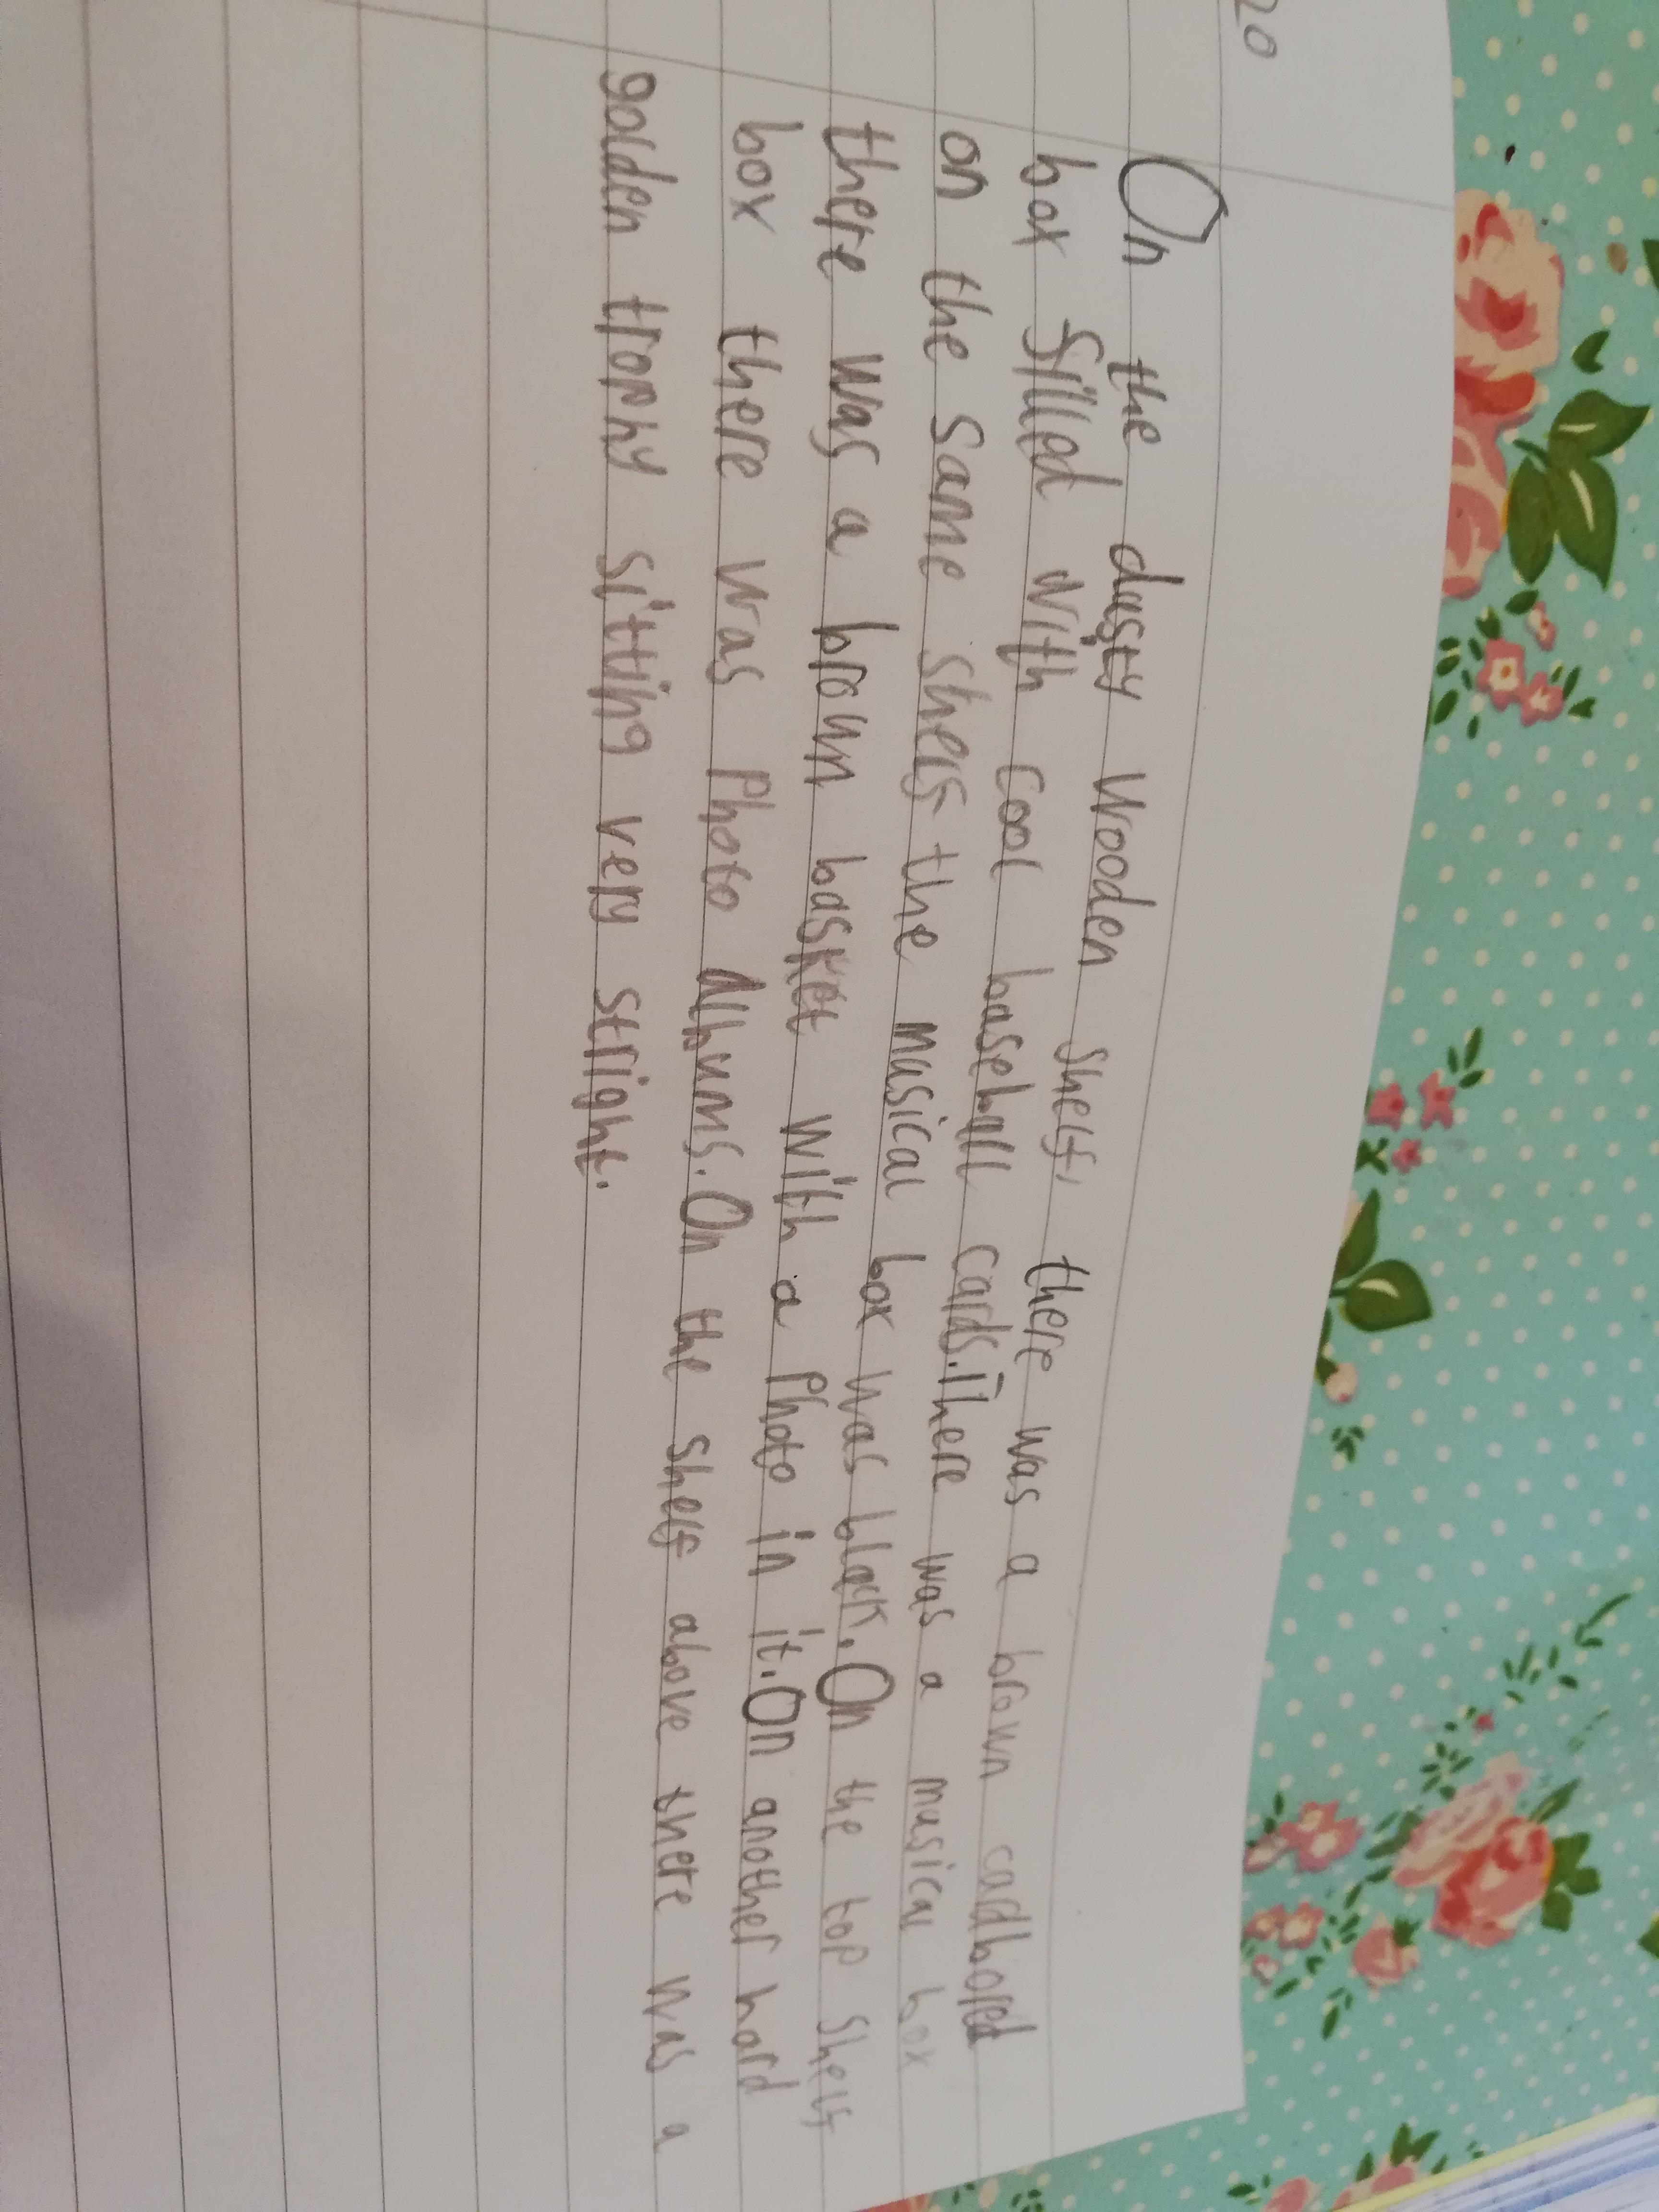 20
On the dusty wooden shelf, there was a brown cadbored
box filled with cool baseball cards. There was a musical box
on the same shelf the musical box was black. On the top shelf
there was a brown basket with a Photo in it. On another hard
box there was Photo Albums. On the shelf above there was a
golden trophy sitting very stright.